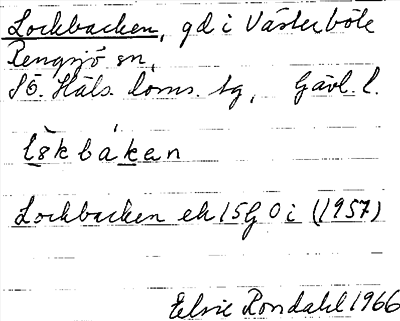 Lockbacken, gd i Västerböle
Rengsjö sn,
Sö. Häls. doms. tg, Gävl. l.
Lockbacken ek 15G 0 i (1957)
Elsie Rondahl 1966